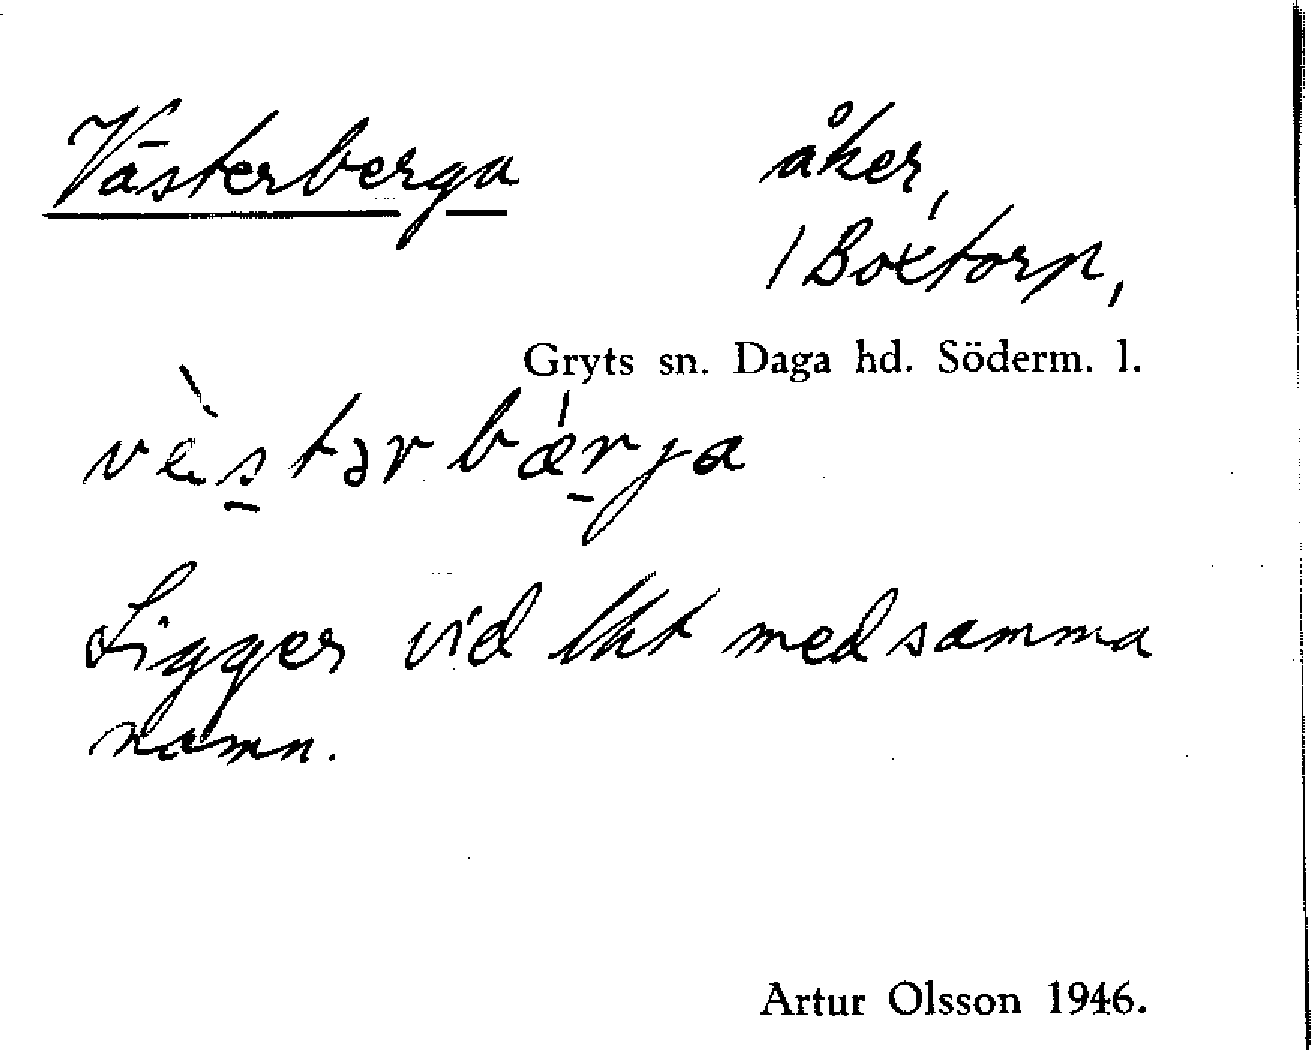 Västerberga
åker,
1 Boxtorp,
Gryts sn. Daga hd. Söderm. l.
vèstərbǽrja
Ligger vid lht med samma
namn.
Artur Olsson 1946.